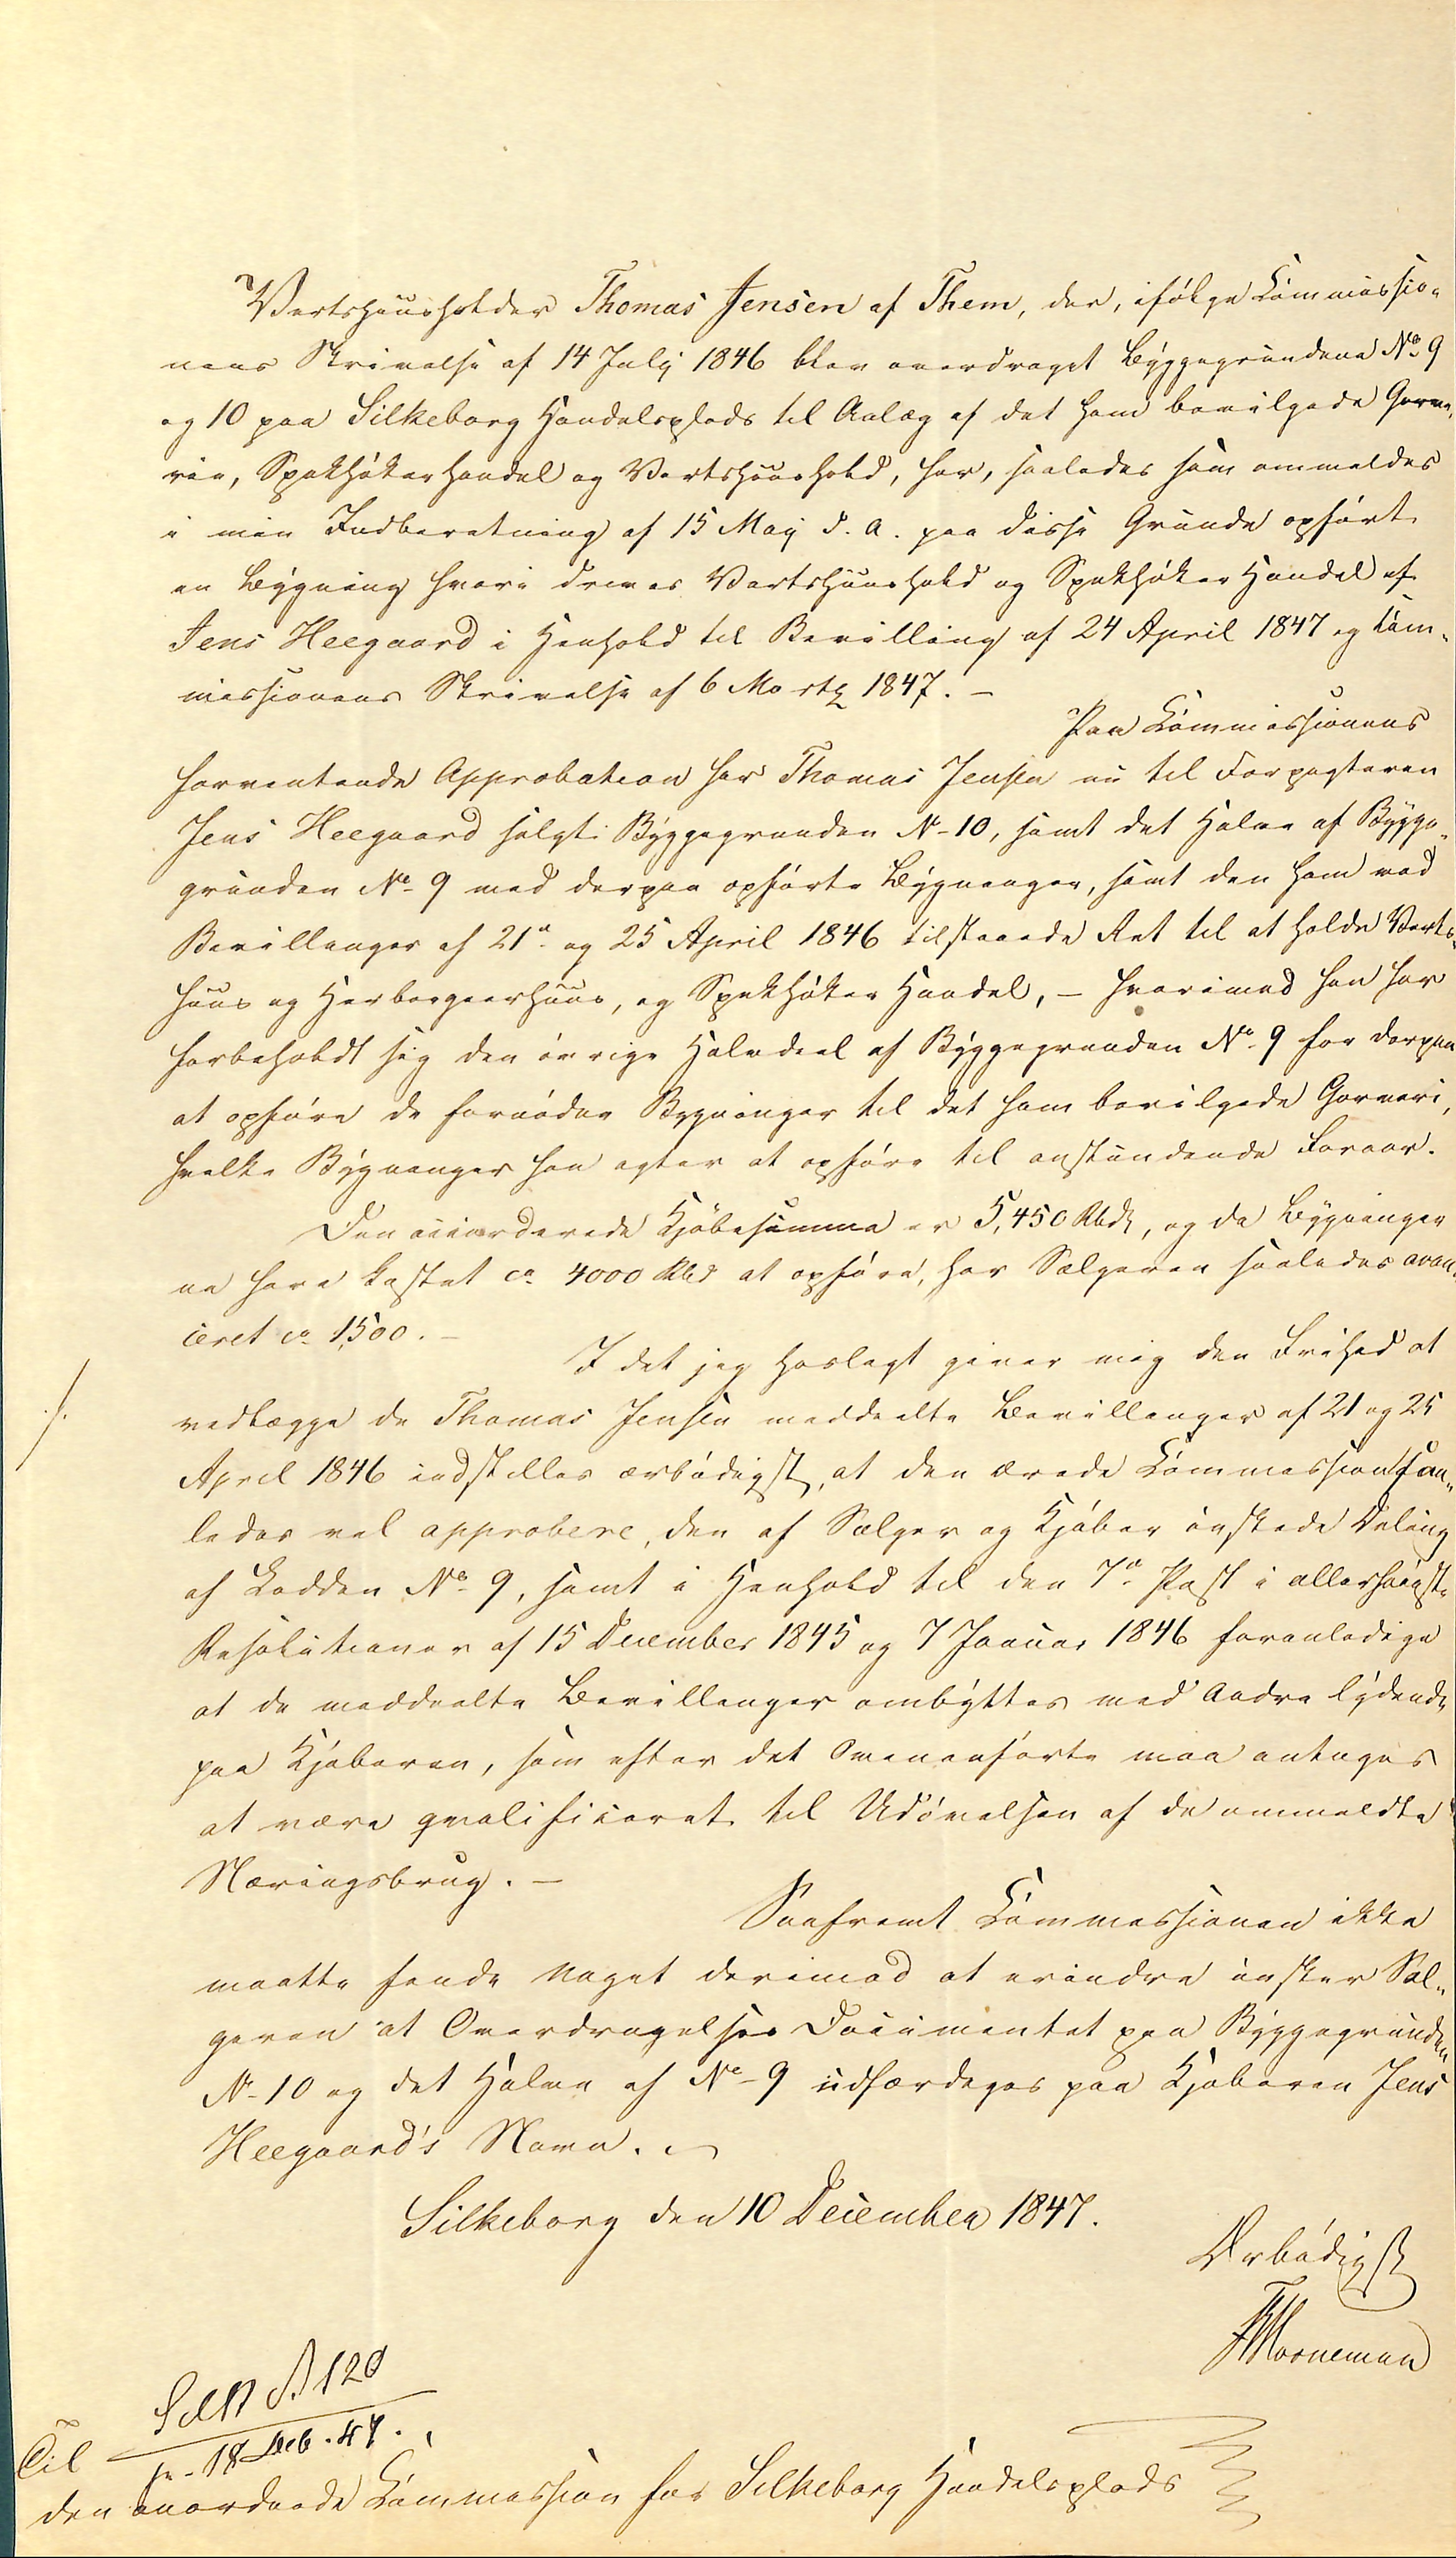 Vertshuusholder Thomas Jensen af Them, der, ifølge Commissio-
nens Skrivelse af 14 July 1846 blev overdraget Byggegrundene No 9
og 10 paa Silkeborg Handelsplads til Anlæg af det ham bevilgede Garve-
rie, Spekhøkerhandel og Vertshuushold, har, saaledes som ommeldes
i min Indberetning af 15 May d. A. paa disse Grunde opført
en Bygning hvori drives Vertshuushold og Spekhøker Handel af
Jens Heegaard i Henhold til Bevilling af 24 April 1847 og Com-
missionens Skrivelse af 6 Marts 1847. –
Paa Commissionens
forventende Approbation har Thomas Jensen nu til Forpagteren
Jens Heegaard solgt Byggegrunden No 10, samt det Halve af Bygge-
grunden No 9 med derpaa opførte Bygninger, samt den ham ved
Bevillinger af 21de og 25 April 1846 tilstaaede Ret til at holde Verts-
huus og Herbergeerhuus, og Spekhøker Handel, – hvorimod han har
forbeholdt sig den øvrige Halvdeel af Byggegrunden No 9 for derpaa
at opføre de fornødne Bygninger til det ham bevilgede Garveri,
hvilke Bygninger han agter at opføre til anstundende Foraar.
Den accorderede Kjøbesumma er 5,450 Rbd, og da Bygninger
ne have kostet ca 4000 Rbd at opføre, har Sælgeren saaledes avan-
ceret ca 1,500. –
I det jeg hoslagt giver mig den Frihed at
./.
vedlægge de Thomas Jensen meddeelte Bevillinger af 21 og 25
April 1846 indstilles ærbødigst, at den ærede Commission saa-
ledes vil approbere, den af Sælger og Kjøber ønskede Deling
af Lodden No 9, samt i Henhold til den 7de Post i allerhøieste
Resolutioner af 15 December 1845 og 7 Januar 1846 foranledige
at de meddeelte Bevillinger ombyttes med Andre lydende
paa Kjøberen, som efter det Ovenanførte maa antages
at være qvalificeret til Udøvelsen af de ommeldte
Næringsbrug. –
Saafremt Commissionen ikke
maatte finde Noget derimod at erindre ønsker Sæl-
geren at Overdragelses Documentet paa Byggegrunden
No 10 og det Halve af No 9 udfærdiges paa Kjøberen Jens
Heegaard's Navn. –
Silkeborg den 10 December 1847.
Ærbødigst
Horneman
120
18 Deb. 47.
Til
den anordnede Commission for Silkeborg Handelsplads